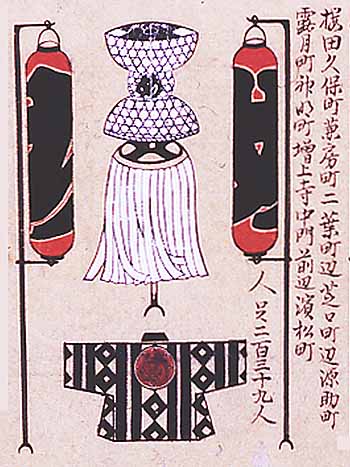 桜田久保町兼房町二葉町辺芝口町辺源助町
露月町神明町増上寺中門前辺濱松町
人足二百三十九人